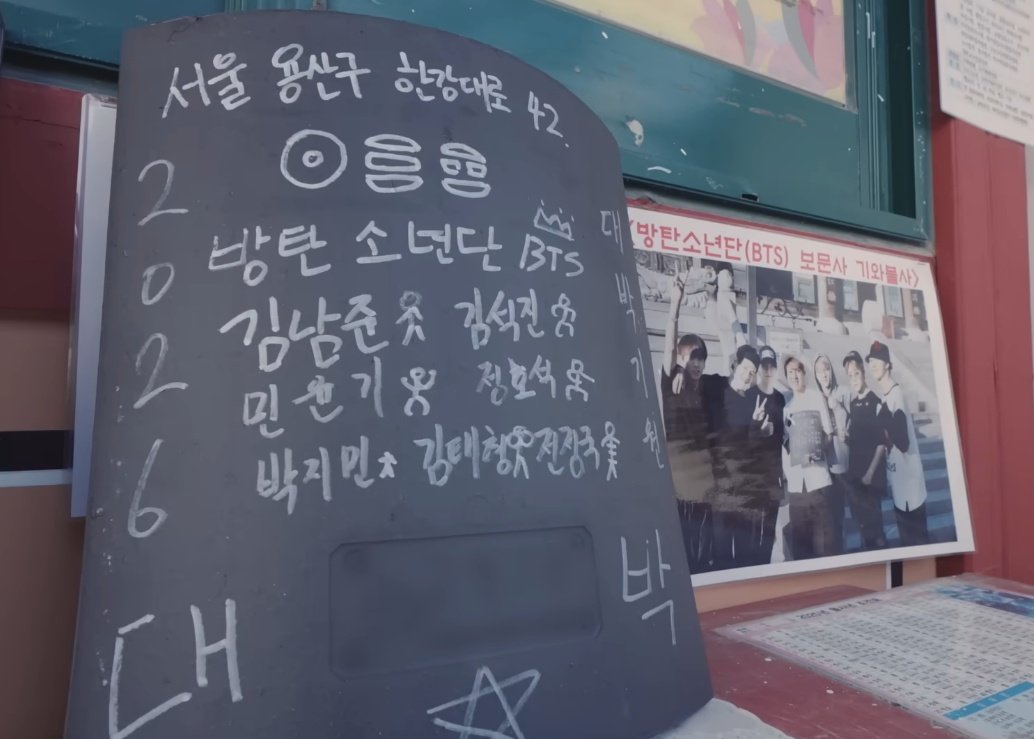 서울 용산구 한강대로 42.
2026
방탄소년단 BTS
김남준 김석진
민윤기 정호석
박지민 김태형 전정국
대박기원
대박
<방탄소년단(BTS) 보문사 기와불사>